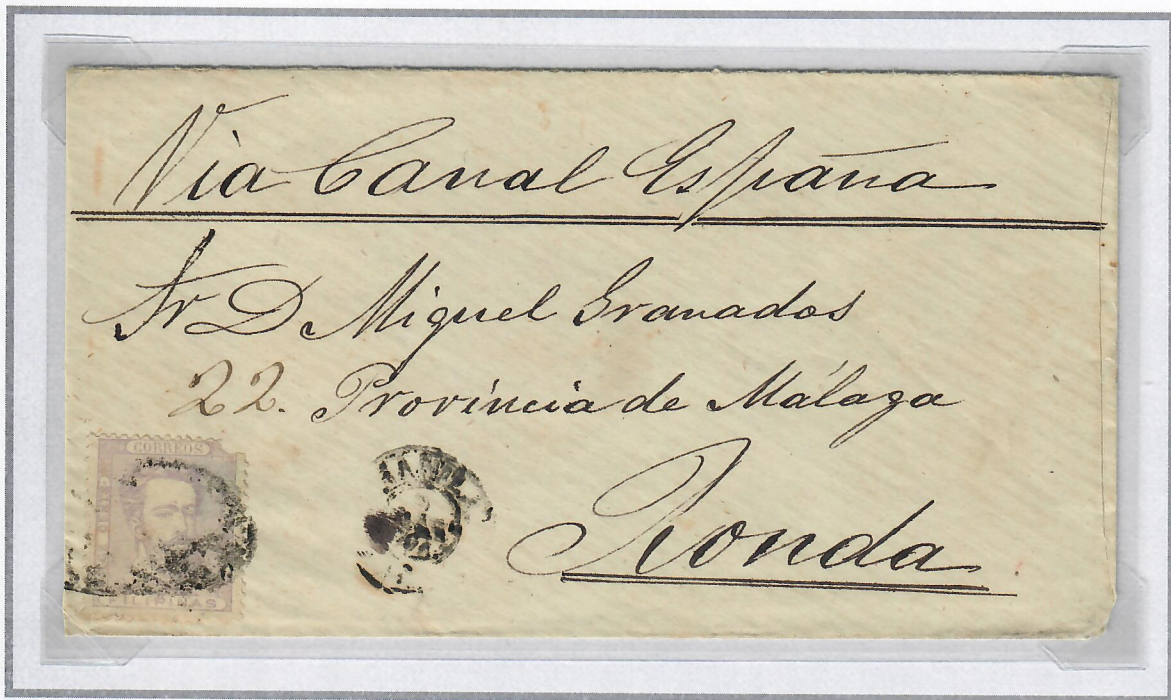 Via Canal España
Sr D Miguel Granados
22. Provincia de Málaga
Ronda
CORREOS
FILIPINAS
MANILA